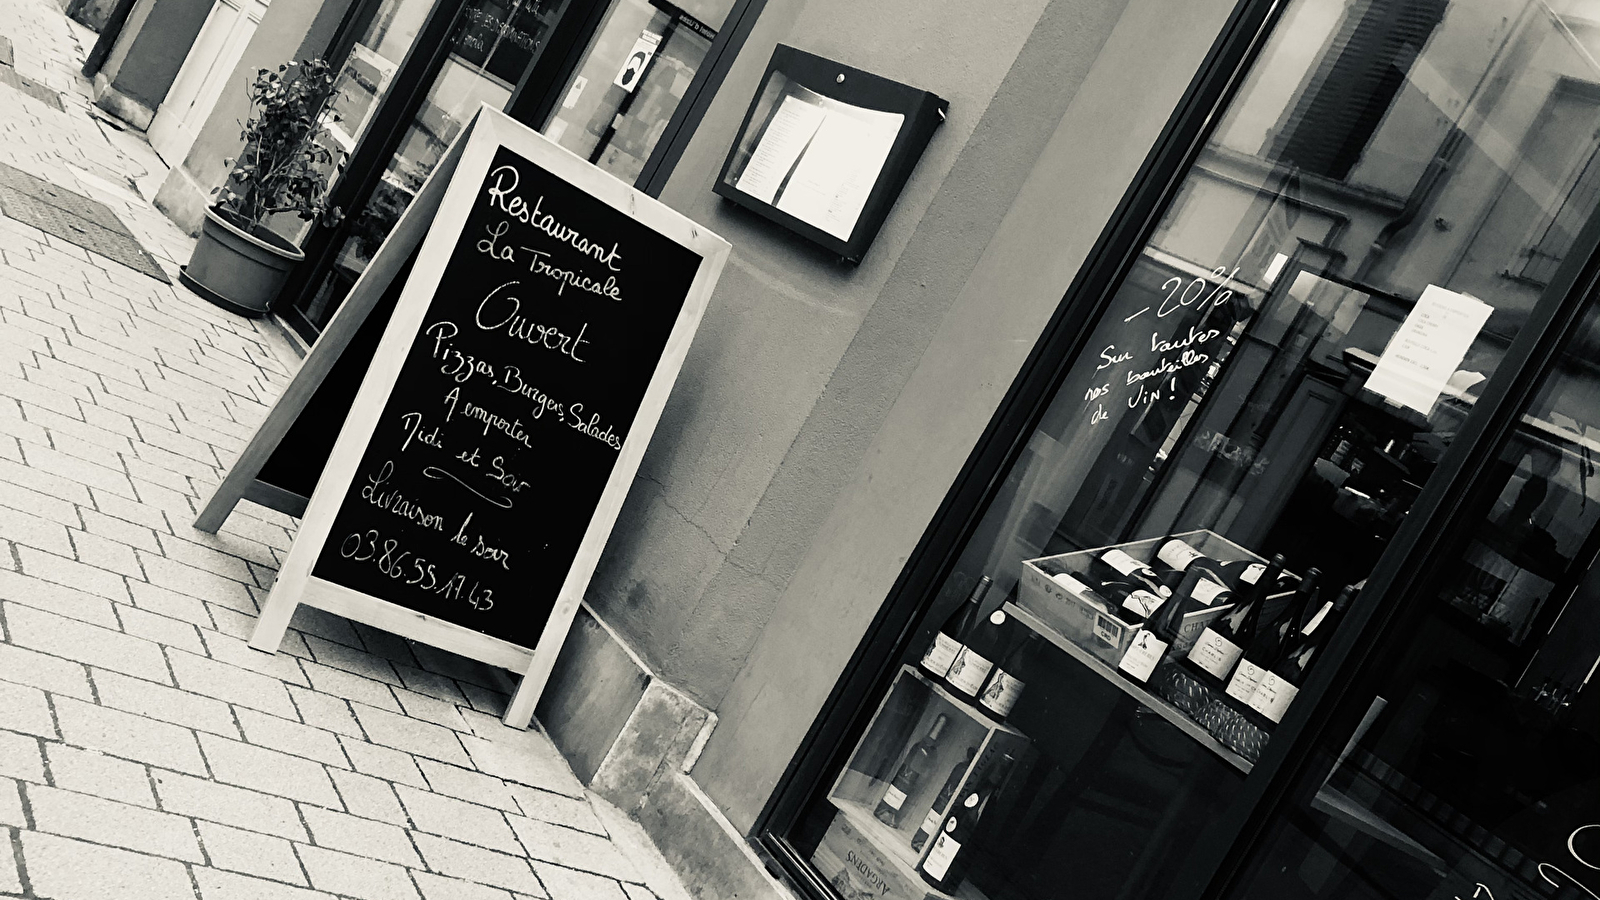 Restaurant
La Tropicale
Ouvert
Pizzas, Burgers, Salades
A emporter
Midi et Soir
Livraison le soir
03.86.55.17.43
- 20%
Sur toutes
nos bouteilles
de vin !
ARGADENS
CHABLIS